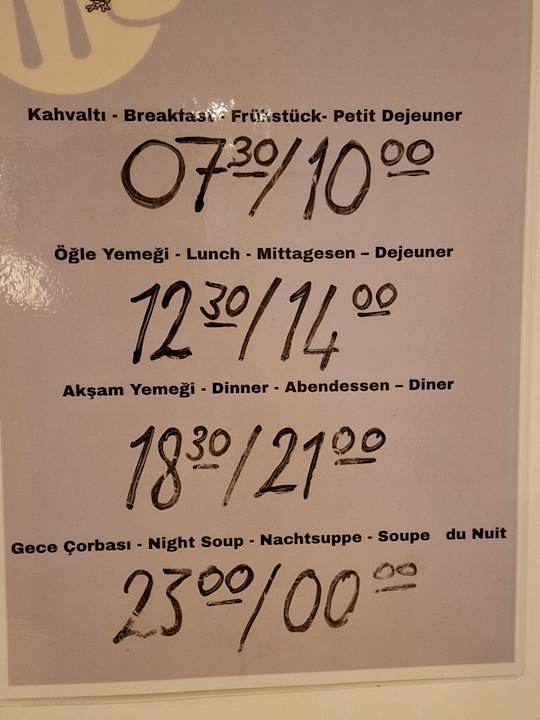 Kahvaltı - Breakfast - Frühstück- Petit Dejeuner
07³⁰/10⁰⁰
Öğle Yemeği - Lunch - Mittagesen – Dejeuner
12³⁰/14⁰⁰
Akşam Yemeği - Dinner - Abendessen – Diner
18³⁰/21⁰⁰
Gece Çorbası - Night Soup - Nachtsuppe - Soupe du Nuit
23⁰⁰/00⁰⁰